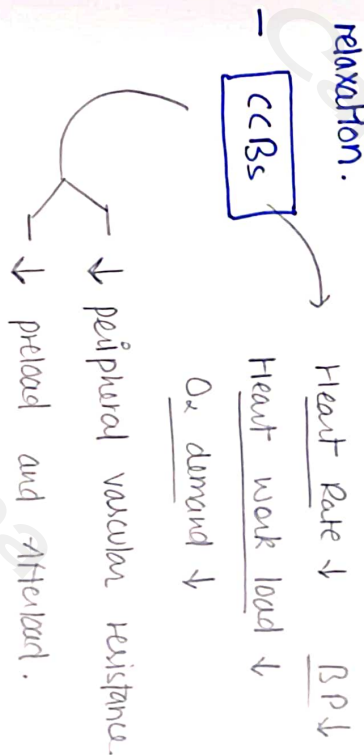 relaxation.
- CCBs
Heart Rate ↓ BP ↓
Heart work load ↓
O₂ demand ↓
↓ peripheral vascular resistance.
↓ preload and Afterload.